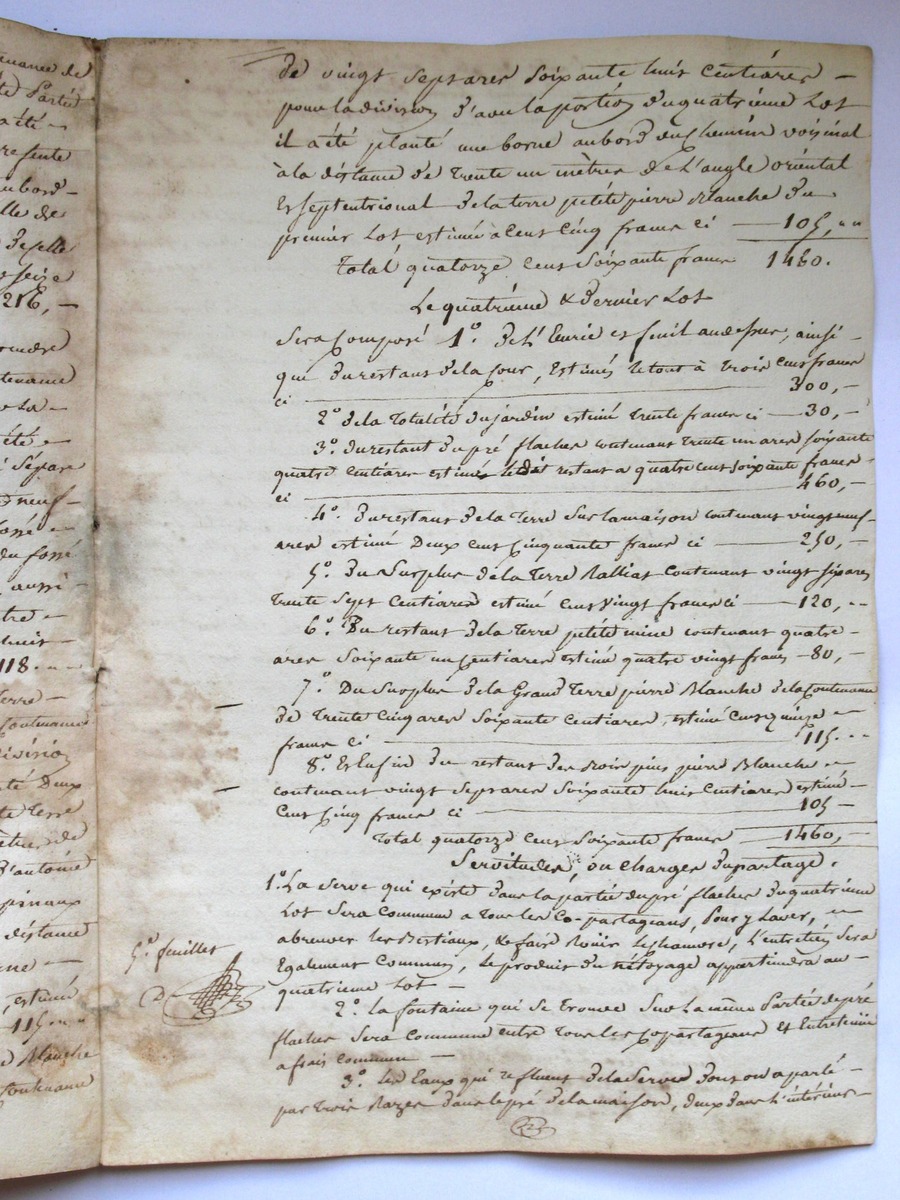 de vingt sept ares soixante huit centiares –
pour la division d'avec la portion du quatrième Lot
il a été planté une borne au bord du chemin voisinal
à la distance de trente un mètres de l'angle oriental
Et septentrional de la terre petite pierre Blanche du
premier Lot estimé à cent cinq francs ci — 105, ""
Total quatorze cent soixante francs 1460.
Le quatrième & dernier Lot
Sera Composé 1º. de l'Ecurie et fenil au dessus, ainsi
que du restant de la cour, Estimés le tout à trois cent francs
ci — 300, –
2º de la totalité du jardin estimé trente francs ci — 30, –
3º. du restant du pré flaches contenant trente un ares soixante
quatre centiares estimé le dit restant a quatre cent soixante francs
ci — 460, –
4º. du restant de la terre Sur la maison contenant vingt neuf
ares estimé deux cent cinquante francs ci — 250, –
5º. du Surplus de la terre Ralliat contenant vingt six ares
trente sept centiares estimé cent vingt francs ci — 120, ""
6º. Du restant de la terre petite mine contenant quatre –
ares soixante un centiares estimé quatre vingt francs – 80, –
7º. Du Surplus de la Grand terre pierre Blanche de la Contenance
de trente cinq ares soixante centiares, estimé cent quinze –
francs ci — 115. ""
8º. Et Enfin du restant des pierre Blanche
contenant vingt sept ares soixante huit centiares estimé
cent cinq francs ci — 105 –
Total quatorze cent soixante francs 1460, –
Servitudes, ou Charges du partage.
1º. La Serve qui existe dans la partie du pré flaches du quatrième
Lot Sera Commun a tous les Co-partageans, pour y Laver,
abreuver les Bestiaux, & faire Roüir le chanvre, l'entretien sera
Egalement Commun, le produit du nétoyage appartiendra au
quatrième Lot –
2º. la fontaine qui se trouve Sur la même Partie de pré
flaches Sera Commune entre tous les copartageans et Entretenüe
a frais commun –
3º. les Eaux qui refluent de la Serve dont on a parlé –
par trois Razes dans le pré de la maison, deux dans l'intérieur –
5.e feuillet
216, –
neuf
du fossé
aussi
118. ""
Contenance
Division
té Deux
D'antoine
distance
, estimé
115 ""
Blanche
Contenance